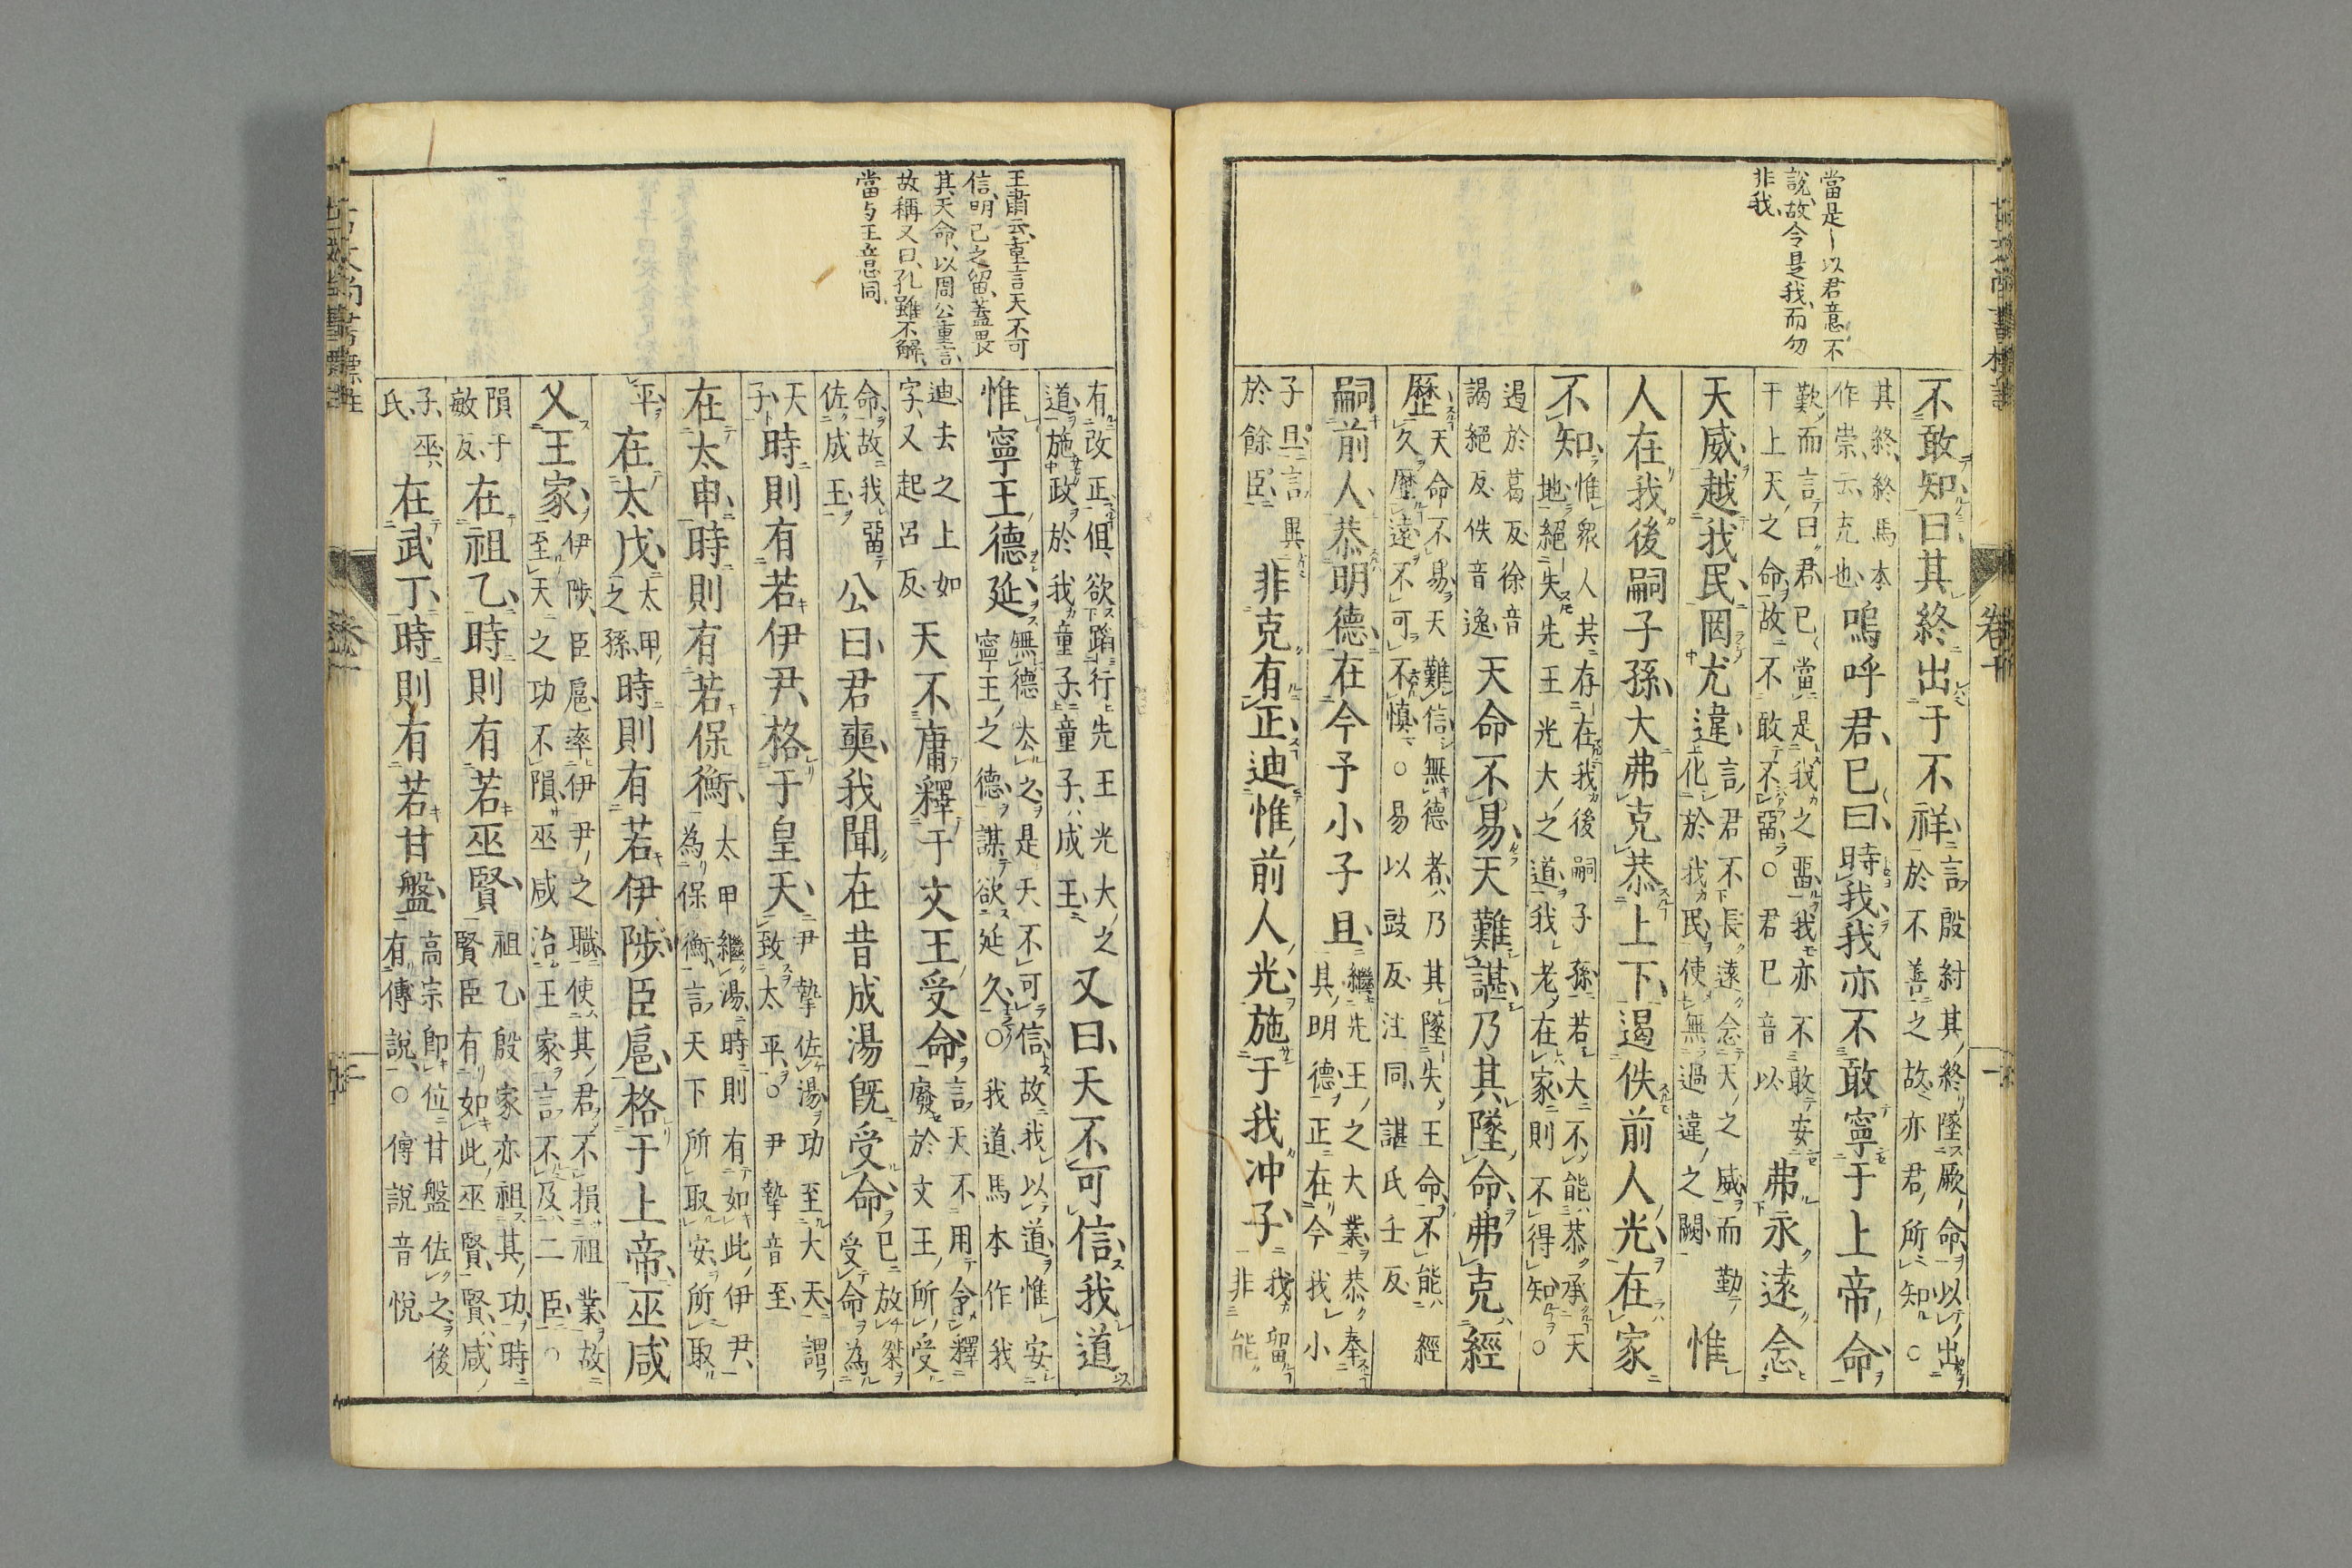 當是〡以君意不
說故令是我而勿
非我
不敢知曰其終出于不祥
言殷紂其終墜厥命以出
於不善之故亦君所知○
其終終馬本
作崇云充也
嗚呼君已曰時我我亦不敢寧于上帝命
歎而言曰君已當是我之畱我亦不敢安
干上天之命故不敢不畱○君已音以
弗永遠念
天威越我民罔尤違
言君不長遠念天之威而勤
化於我民使無過違之闕
惟
人在我後嗣子孫大弗克恭上下遏佚前人光在家
不知
惟衆人共存在我後嗣子孫若大不能恭承天
地絕失先王光大之道我老在家則不得知○
遏於葛反徐音
謁絕反佚音逸
天命不易天難諶乃其墜命弗克經
歷
天命不易天難信無德者乃其墜失王命不能經
久歷遠不可不慎○易以豉反注同諶氏壬反
嗣前人恭明德在今予小子旦
繼先王之大業恭奉
其明德正在今我小
子旦言異
於餘臣
非克有正迪惟前人光施于我冲子
我畱
非能
王肅云重言天不可
信明己之留蓋畏
其天命以周公重言
故稱又曰孔雖不解
當与王意同
有改正但欲蹈行先王光大之
道施政於我童子童子成王
又曰天不可信我道
惟寧王德延
無德去之是天不可信故我以道惟安
寧王之德謀欲延久○我道馬本作我
迪去之上如
字又起呂反
天不庸釋于文王受命
言天不用令釋
廢於文王所受
命故我畱
佐成王
公曰君奭我聞在昔成湯旣受命
已放桀
受命為
天
子
時則有若伊尹格于皇天
尹摯佐湯功至大天謂
致太平○尹摯音至
在太甲時則有若保衡
太甲繼湯時則有如此伊尹
為保衡言天下所取安所取
平
在太戊
太甲
之孫
時則有若伊陟臣扈格于上帝巫咸
乂王家
伊陟臣扈率伊尹之職使其君不損祖業故
至天之功不隕巫咸治王家言不及二臣○
隕于
敏反
在祖乙時則有若巫賢
祖乙殷家亦祖其功時
賢臣有如此巫賢賢咸
子巫
氏
在武丁時則有若甘盤
高宗即位甘盤佐之後
有傅說○傅說音悅